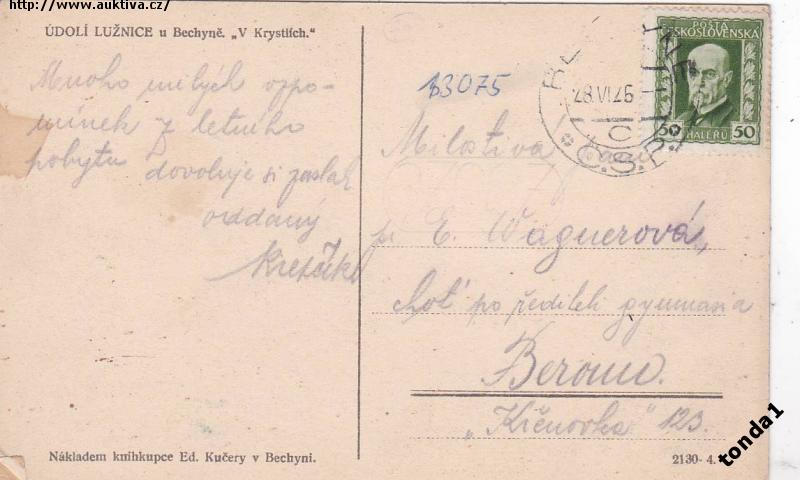 http://www.auktiva.cz/
ÚDOLÍ LUŽNICE u Bechyně. „V Krystlích."
Mnoho milých vzpo-
mínek z letního
pobytu dovoluje si zaslat
oddaný
b3075
28.VI.26
Č.S.R.
POŠTA
ČESKOSLOVENSKÁ
50 HALÉŘŮ 50
Milostivá paní
pí E. Wagnerová,
choť po řediteli gymnasia
Beroun.
„Křenovka" 123.
Nákladem knihkupce Ed. Kučery v Bechyni.
2130-4.
tonda1